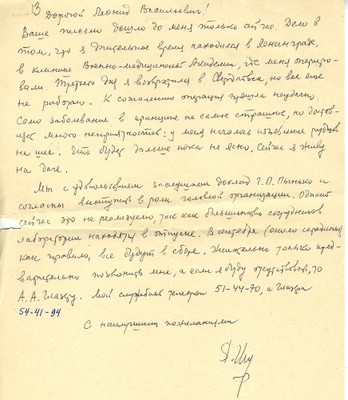 Дорогой Леонид Васильевич!
Ваше письмо дошло до меня только сейчас. Дело в
том, что я длительное время находился в Ленинграде,
в клинике Военно-медицинской Академии, где меня опериро-
вали. Третьего дня я возвратился в Свердловск, но все еще
не работаю. К сожалению операция прошла неудачно.
Само заболевание в принципе не самое страшное, но достав-
много неприятностей: у меня началось изъявление рубцов
на шее. Что будет дальше пока не ясно. Сейчас я живу
на даче.
Мы с удовольствием заслушаем доклад Г.П.
согласны выступить в роли головной организации. Однако
сейчас это не реализуемо, так как большинство сотрудников
лаборатории находятся в отпуске. В сентябре (около середины)
как правило, все будут в сборе. Желательно только пред-
варительно позвонить мне, а если я буду отсутствовать, то
А.А. Мой служебный телефон 51-44-70, а
54-41-94
С наилучшими пожеланиями